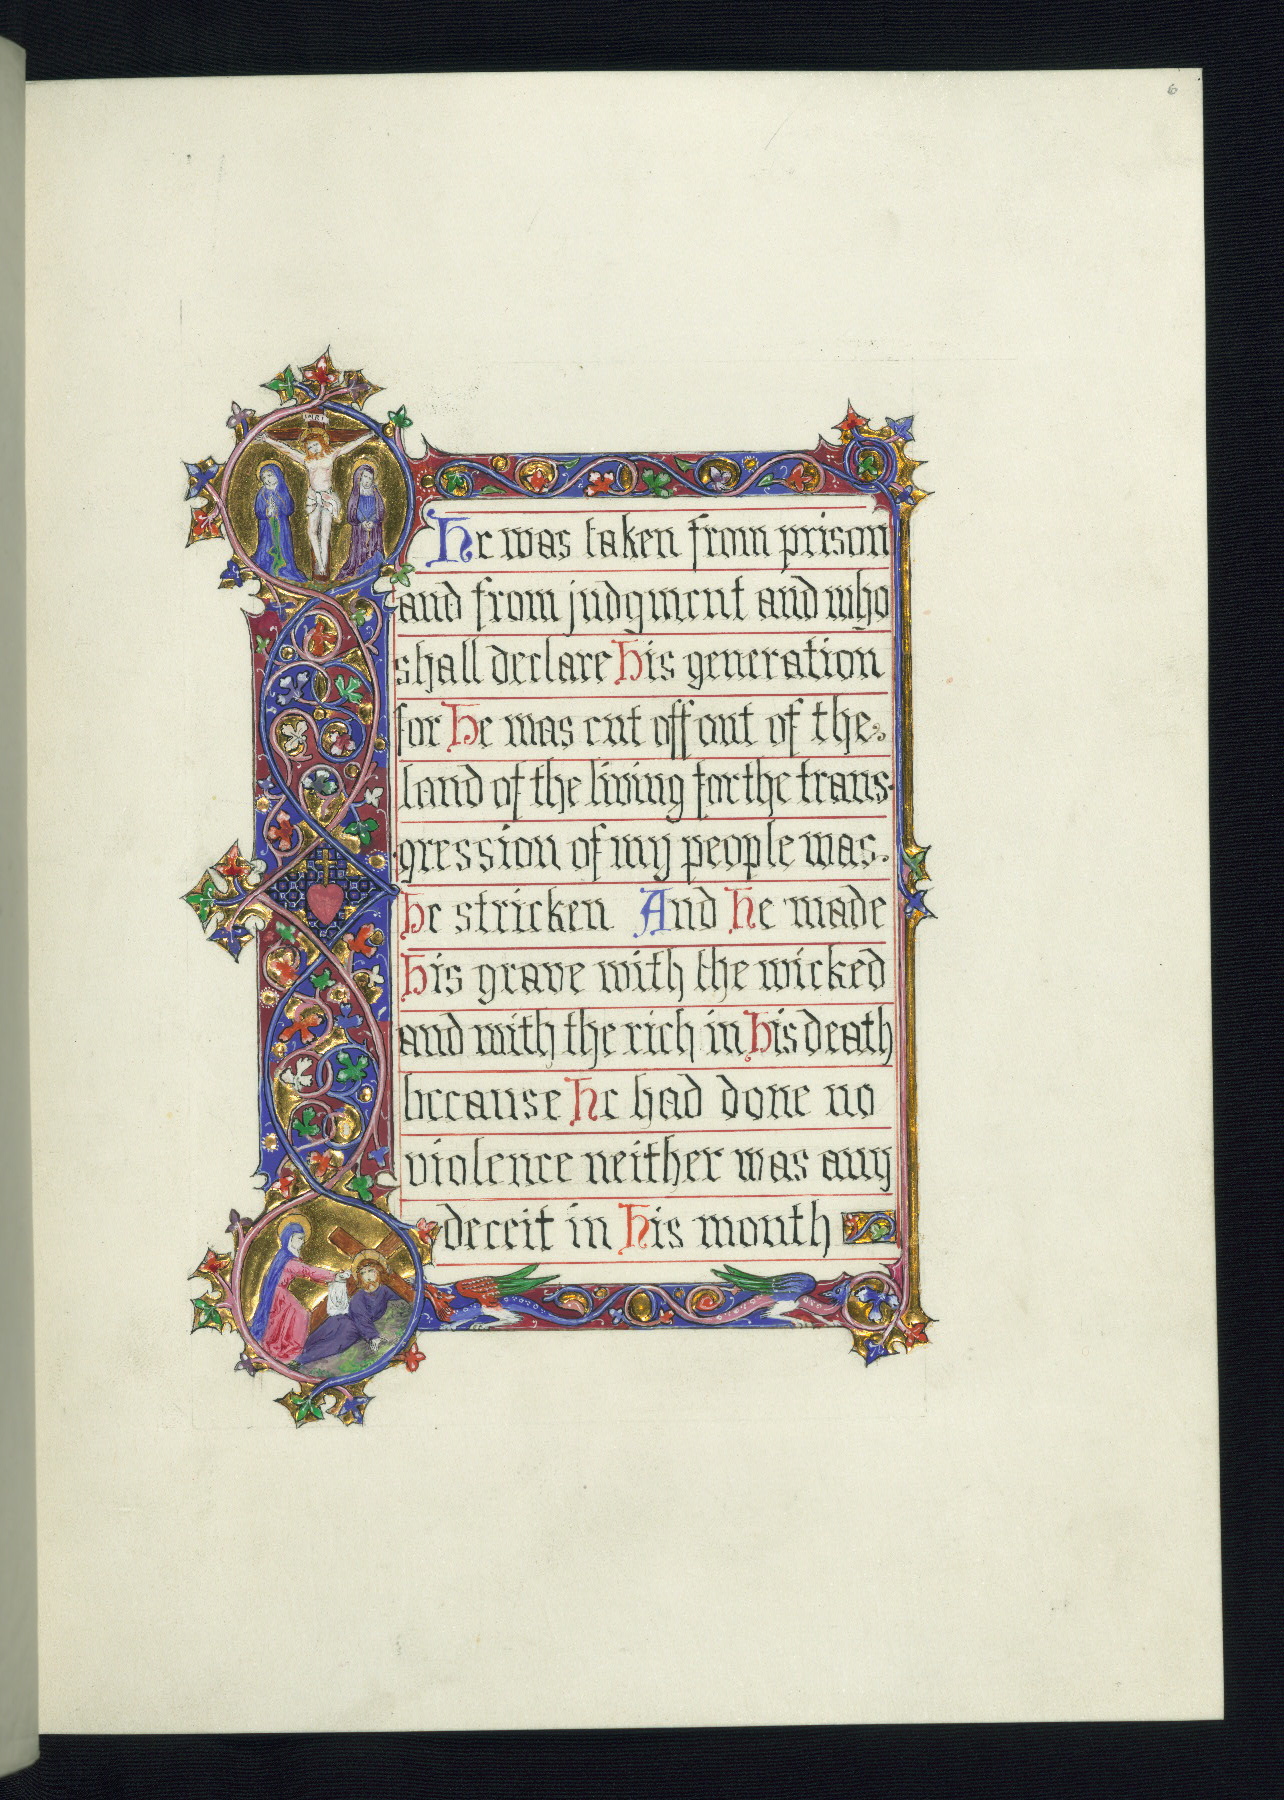 6
INRI
He was taken from prison
and from judgment and who
shall declare His generation
for He was cut off out of the
land of the living for the trans-
gression of my people was.
He stricken And He made
His grave with the wicked
and with the rich in His death
because He had done no
violence neither was any
deceit in His mouth